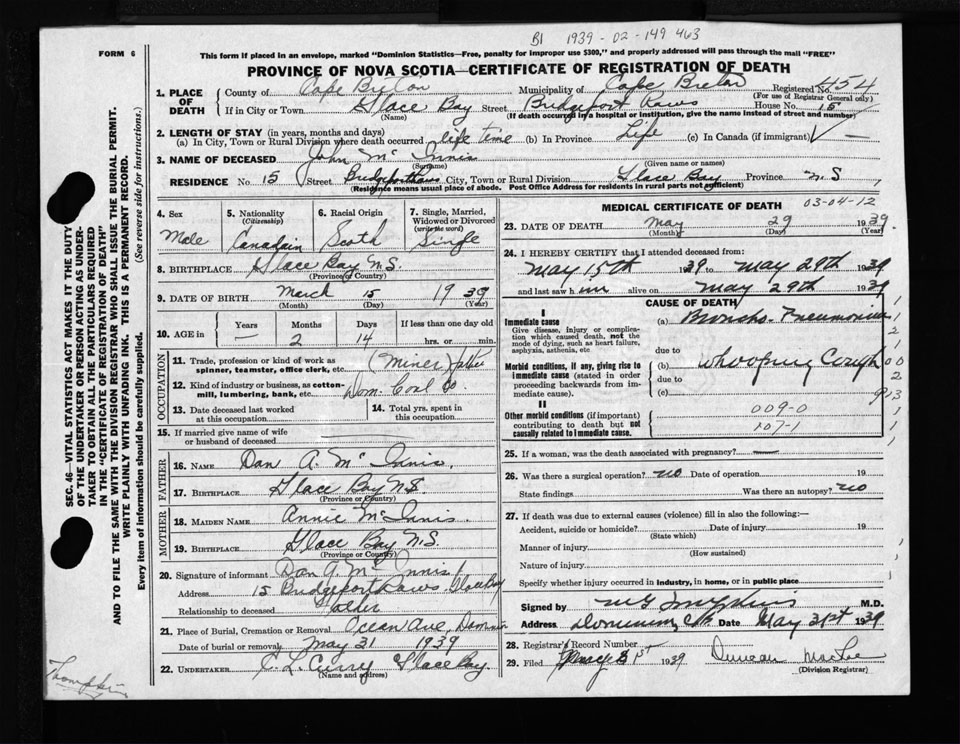 B1 1939-02-149 463
FORM 6
This form if placed in an envelope, marked "Dominion Statistics—Free, penalty for improper use $300," and properly addressed will pass through the mail "FREE"
PROVINCE OF NOVA SCOTIA—CERTIFICATE OF REGISTRATION OF DEATH
SEC. 46—VITAL STATISTICS ACT MAKES IT THE DUTY
OF THE UNDERTAKER OR PERSON ACTING AS UNDER-
TAKER TO OBTAIN ALL THE PARTICULARS REQUIRED
IN THE "CERTIFICATE OF REGISTRATION OF DEATH"
AND TO FILE THE SAME WITH THE DIVISION REGISTRAR WHO SHALL ISSUE THE BURIAL PERMIT.
WRITE PLAINLY WITH UNFADING INK. THIS IS A PERMANENT RECORD.
Every item of information should be carefully supplied. (See reverse side for instructions.)
1. PLACE OF DEATH County of Cape Breton Municipality of Cape Breton Registered No. 454
(For use of Registrar General only)
If in City or Town Glace Bay Street Bridgeport Rows House No. 15
(Name) (If death occurred in a hospital or institution, give the name instead of street and number)
2. LENGTH OF STAY (in years, months and days)
(a) In City, Town or Rural Division where death occurred life time (b) In Province Life (c) In Canada (if immigrant) —
3. NAME OF DECEASED John Mc Innis
(Surname) (Given name or names)
RESIDENCE No 15 Street Bridgeport Rows City, Town or Rural Division Glace Bay Province N S
(Residence means usual place of abode. Post Office Address for residents in rural parts not sufficient)
4. Sex Male
5. Nationality (Citizenship) Canadain
6. Racial Origin Scoth
7. Single, Married, Widowed or Divorced (write the word) Single
8. BIRTHPLACE Glace Bay N.S.
(Province or Country)
9. DATE OF BIRTH March 15 1939
(Month) (Day) (Year)
10. AGE in Years — Months 2 Days 14 If less than one day old hrs. or min.
OCCUPATION
11. Trade, profession or kind of work as spinner, teamster, office clerk, etc. (Miner) father
12. Kind of industry or business, as cotton-mill, lumbering, bank, etc. Dom. Coal Co
13. Date deceased last worked at this occupation
14. Total yrs. spent in this occupation
15. If married give name of wife or husband of deceased
FATHER
16. NAME Dan A. Mc Innis.
17. BIRTHPLACE Glace Bay N.S.
(Province or Country)
MOTHER
18. MAIDEN NAME Annie McInnis.
19. BIRTHPLACE Glace Bay N.S.
(Province or Country)
20. Signature of informant Dan A Mc Innis
Address 15 Bridgeport Rows Glace Bay
Relationship to deceased Father
21. Place of Burial, Cremation or Removal Ocean Ave, Dominion
Date of burial or removal May 31 1939
22. UNDERTAKER C. L. Curry Glace Bay.
(Name and address)
MEDICAL CERTIFICATE OF DEATH 03-04-12
23. DATE OF DEATH May 29 1939
(Month) (Day) (Year)
24. I HEREBY CERTIFY that I attended deceased from:
May 15th 1939 to May 29th 1939
and last saw h im alive on May 29th 1939
CAUSE OF DEATH
I
Immediate cause (a) Broncho-Pneumonia
Give disease, injury or complication which caused death, not the mode of dying, such as heart failure, asphyxia, asthenia, etc
due to
(b) Whooping Cough
Morbid conditions, if any, giving rise to immediate cause (stated in order proceeding backwards from immediate cause).
due to
(c)
II
Other morbid conditions (if important) contributing to death but not causally related to immediate cause.
009-0
107-1
25. If a woman, was the death associated with pregnancy? —
26. Was there a surgical operation? no Date of operation 19
State findings Was there an autopsy? no
27. If death was due to external causes (violence) fill in also the following:—
Accident, suicide or homicide? Date of injury 19
(State which)
Manner of injury
(How sustained)
Nature of injury
Specify whether injury occurred in industry, in home, or in public place
Signed by M.D.
Address Dominion, C.B. Date May 31st 1939
28. Registrar's Record Number
29. Filed May 31st 1939 Duncan
(Division Registrar)
Thompkins